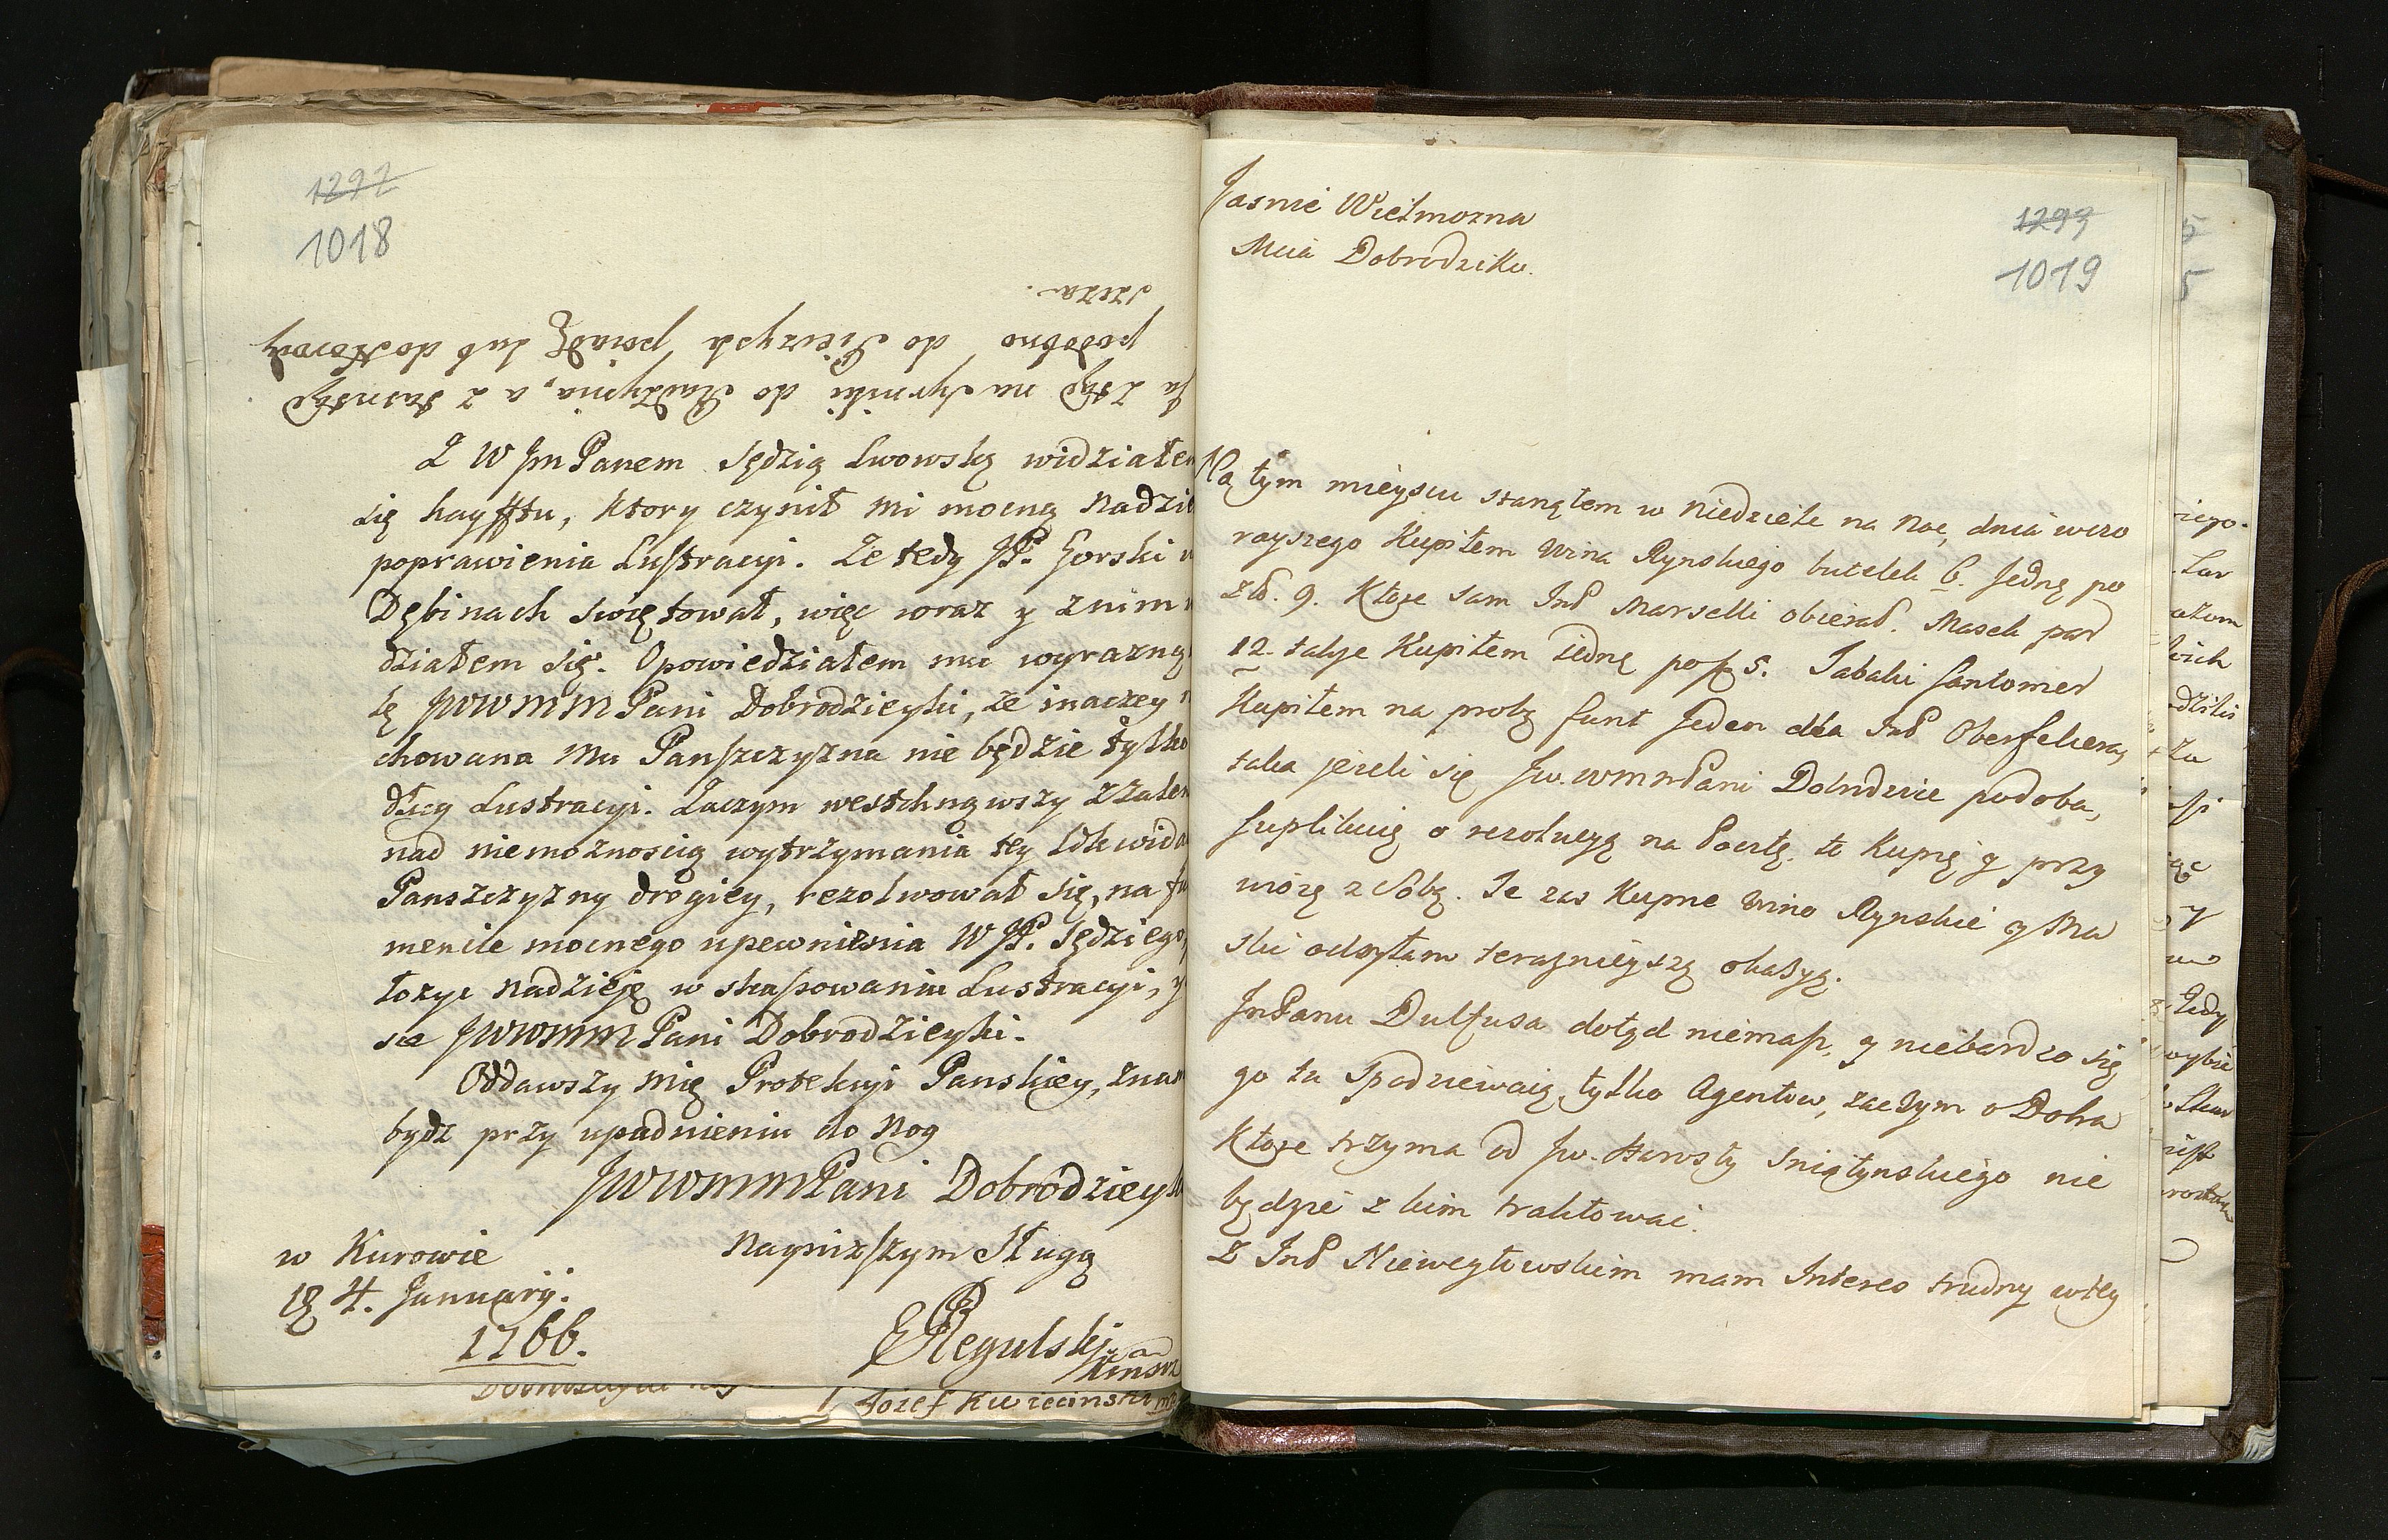 1292
1018
Ja ztąd na Syrniki do Radzynia, a z tamtąd
podobno do Sierzych poiadę lub do Horod
szcza.
Z WJm Panem Sędzią Lwowską widziałem
się, ktory czynił mi mocną nadzie
poprawienia Lustracyi. Ze tedy JP. Gorski w
Dębinach swiętował, więc wraz y z nim
działem się. Opowiedziałem mu wyrazną
lę JWWMMPani Dobrodzieyki, ze inaczey
chowana mu Panszczyzna nie będzie tylko
dług Lustracyi. Zaczym westchnąwszy z zalem
nad niemoznoscią wytrzymania tey
Panszczyzny drogiey, rezolwował się, na fu
mencie mocnego upewnienia WJP. Sędziego,
łozyc nadzieję w skasowaniu Lustracyi, y
sce JWWMMPani Dobrodzieyki.
Oddawszy mię Protekcyi Panskiey, znam
bydz przy upadnieniu do nog
JWWMMPani Dobrodzieyki
w Kurowie
naynizszym Sługą
18 4. January.
1766.
ERegulski
Jozef Kwiecinski mp
Jasnie Wielmozna
Mcia Dobrodziko.
1293
1019
Na tym mieyscu stanąłem w niedziele na noc, dnia wczo
rayszego Kupiłem Wina Rynskiego butelek 6. Jedną po
zł. 9. Ktore sam ImP Marselli obierał. Masek par
12. takze Kupiłem iedną po zł 5. Tabaki Santomer
Kupiłem na probę funt Jeden dla ImP Oberfelcera,
taka jezeli się Jw. WMMPani Dobrodzice podoba,
suplikuię o rezolucyą na Pocztę. te Kupię y przy
wiozę z Sobą. Te zas Kupne Wino Rynskie y Ma
ski odsyłam terazniejszą okazyą.
JmPana Dulfusa dotąd niemasz, y niebardzo się
go tu Spodziewaią, tylko Agentow, zaczym o Dobra
Ktore trzyma od Jw. Starosty Sniatynskiego nie
będzie z kim traktowac.
Z ImP Niewegłowskim mam Interes trudny w tey